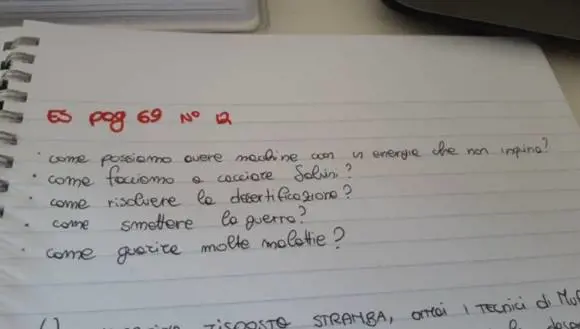 ES pag 69 N° 12
· come possiamo avere machine con un energie che non inquina?
· come facciamo a cacciare Salvini?
· come risolvere la desertificazione?
· come smettere la guerra?
· come guarire molte malattie?
RISPOSTA STRAMBA, ormai i tecnici di